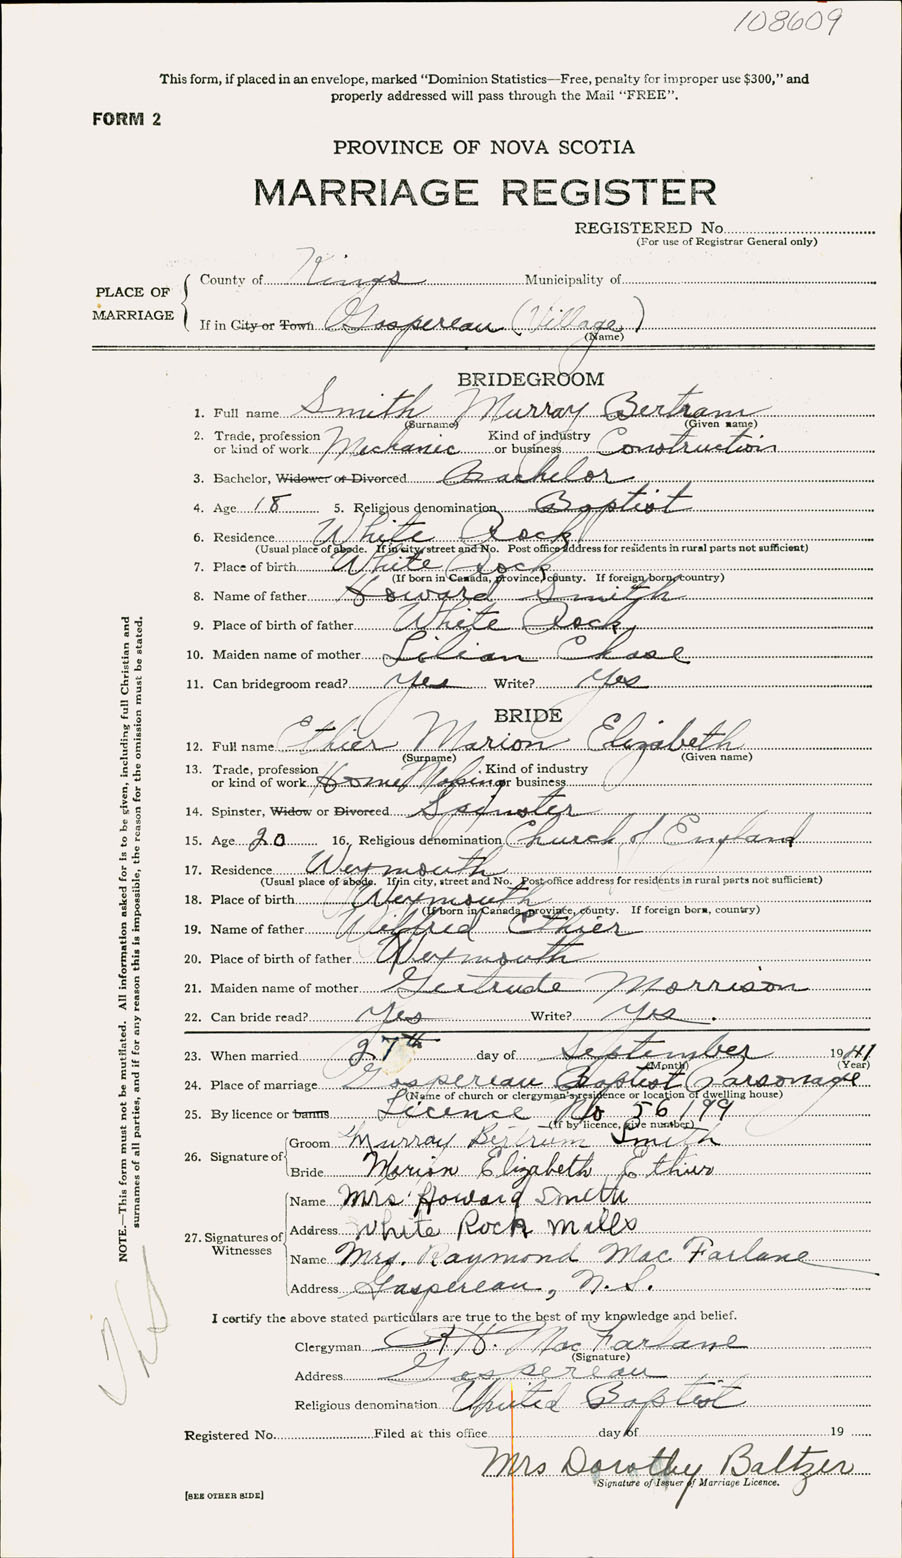 108609
This form, if placed in an envelope, marked "Dominion Statistics—Free, penalty for improper use $300," and
properly addressed will pass through the Mail "FREE".
FORM 2
PROVINCE OF NOVA SCOTIA
MARRIAGE REGISTER
REGISTERED No.
(For use of Registrar General only)
PLACE OF MARRIAGE
County of Kings Municipality of
If in City or Town Gaspereau (Village)
(Name)
BRIDEGROOM
1. Full name Smith Murray Bertram
(Surname) (Given name)
2. Trade, profession or kind of work Mechanic Kind of industry or business Construction
3. Bachelor, Widower or Divorced Bachelor
4. Age 18 5. Religious denomination Baptist
6. Residence White Rock
(Usual place of abode. If in city, street and No. Post office address for residents in rural parts not sufficient)
7. Place of birth White Rock
(If born in Canada, province, county. If foreign born, country)
8. Name of father Howard Smith
9. Place of birth of father White Rock
10. Maiden name of mother Lilian Chase
11. Can bridegroom read? Yes Write? Yes
BRIDE
12. Full name Ethier Marion Elizabeth
(Surname) (Given name)
13. Trade, profession or kind of work Home Making Kind of industry or business
14. Spinster, Widow or Divorced Spinster
15. Age 20 16. Religious denomination Church of England
17. Residence Weymouth
(Usual place of abode. If in city, street and No. Post office address for residents in rural parts not sufficient)
18. Place of birth Weymouth
(If born in Canada, province, county. If foreign born, country)
19. Name of father Wilfred Ethier
20. Place of birth of father Weymouth
21. Maiden name of mother Gertrude Morrison
22. Can bride read? Yes Write? Yes.
23. When married 27th day of September 1941
(Month) (Year)
24. Place of marriage Gaspereau Baptist Parsonage
(Name of church or clergyman's residence or location of dwelling house)
25. By licence or banns Licence No 56199
(If by licence, give number)
26. Signature of
Groom Murray Bertrum Smith
Bride Marion Elizabeth Ethier
27. Signatures of Witnesses
Name Mrs Howard Smith
Address White Rock Mills
Name Mrs. Raymond MacFarlane
Address Gaspereau, N.S.
I certify the above stated particulars are true to the best of my knowledge and belief.
Clergyman R.H. MacFarlane
(Signature)
Address Gaspereau
Religious denomination United Baptist
Registered No. Filed at this office day of 19
Mrs Dorothy Baltzer
Signature of Issuer of Marriage Licence.
[SEE OTHER SIDE]
NOTE.—This form must not be mutilated. All information asked for is to be given, including full Christian and
surnames of all parties, and if for any reason this is impossible, the reason for the omission must be stated.